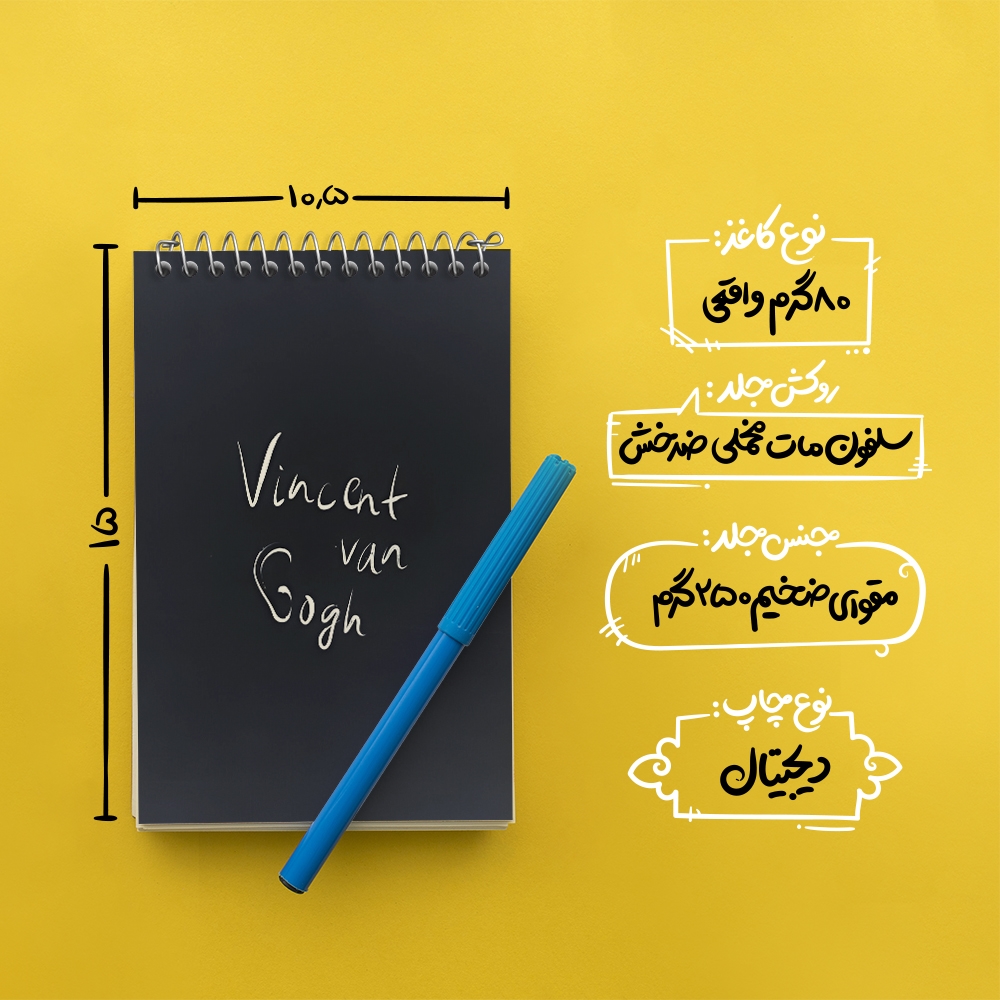 ۱۰٫۵
۱۵
Vincent
van
Gogh
نوع کاغذ:
۸۰گرم واقعی
روکش جلد:
سلفون مات مخملی ضدخش
جنس جلد:
مقوای ضخیم ۲۵۰گرم
نوع چاپ:
دیجیتال